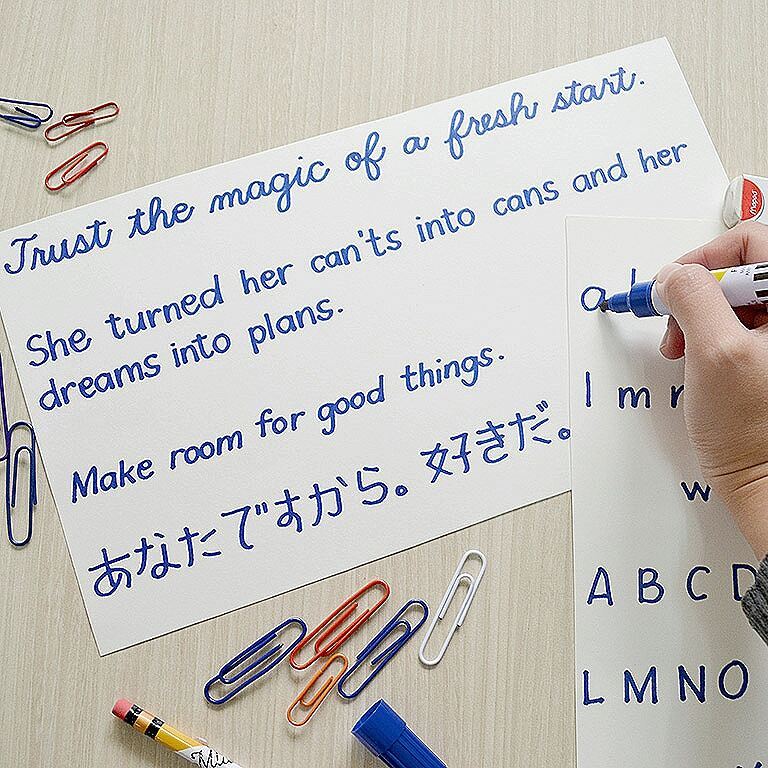 Trust the magic of a fresh start.
She turned her can'ts into cans and her
dreams into plans.
Make room for good things.
あなたですから。好きだ。
a
l m
w
A B C D
L M N O